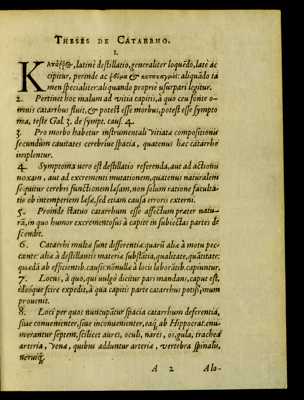 THESES DE CATARRHO.
I.
Κατάῤῥος, latinè destillatio, generaliter loquēdo, latè ac
cipitur, perinde ac ῥεῦμα & : aliquādo tā
men specialiter: aliquando propriè usurpari legitur.
2. Pertinet hoc malum ad vitia capitis, à quo ceu fonte o-
mnis catarrhus fluit, & potest esse morbus, potest esse sympto
ma, teste Gal. 3. de sympt. caus. 4.
3. Pro morbo habetur instrumentali vitiatæ compositionis
secundum cavitates cerebri spacia, quatenus hæc catarrho
implentur.
4. Symptoma vero est destillatio referenda, aut ad actionū
noxam, aut ad excrementi mutationem, quatenus naturalem
seqvitur cerebri functionem læsam, non solum ratione faculta-
tis ob intemperiem læsæ, sed etiam causa erroris externi.
5. Proinde statuo catarrhum esse affectum præter natu-
rā, in quo humor excrementosus à capite in subiectas partes de
scendit.
6. Catarrhi multæ sunt differentiæ: quarū aliæ à motu pec-
cante: aliæ à destillantis materiæ substātia, qualitate, quātitate:
quædā ab efficientib. causis: nōnullæ à locis laboratib. capiuntur.
7. Locus, à quo, qui vulgò dicitur pars mandans, caput est,
idēo&#113;ue scire expedit, à qua capitis parte catarrhus potissimum
proveniat.
8. Loci per quos nuncupātur spacia catarrhum deferentia,
suæ convenienter, sive inconvenienter, eaq; ab Hippocrat. enu-
merantur septem, scilicet aures, oculi, nares, os, gula, trachea
arteria, vena, quibus adduntur arteria, vertebra spinalis,
nervi&#113;;
A 2 Alo-